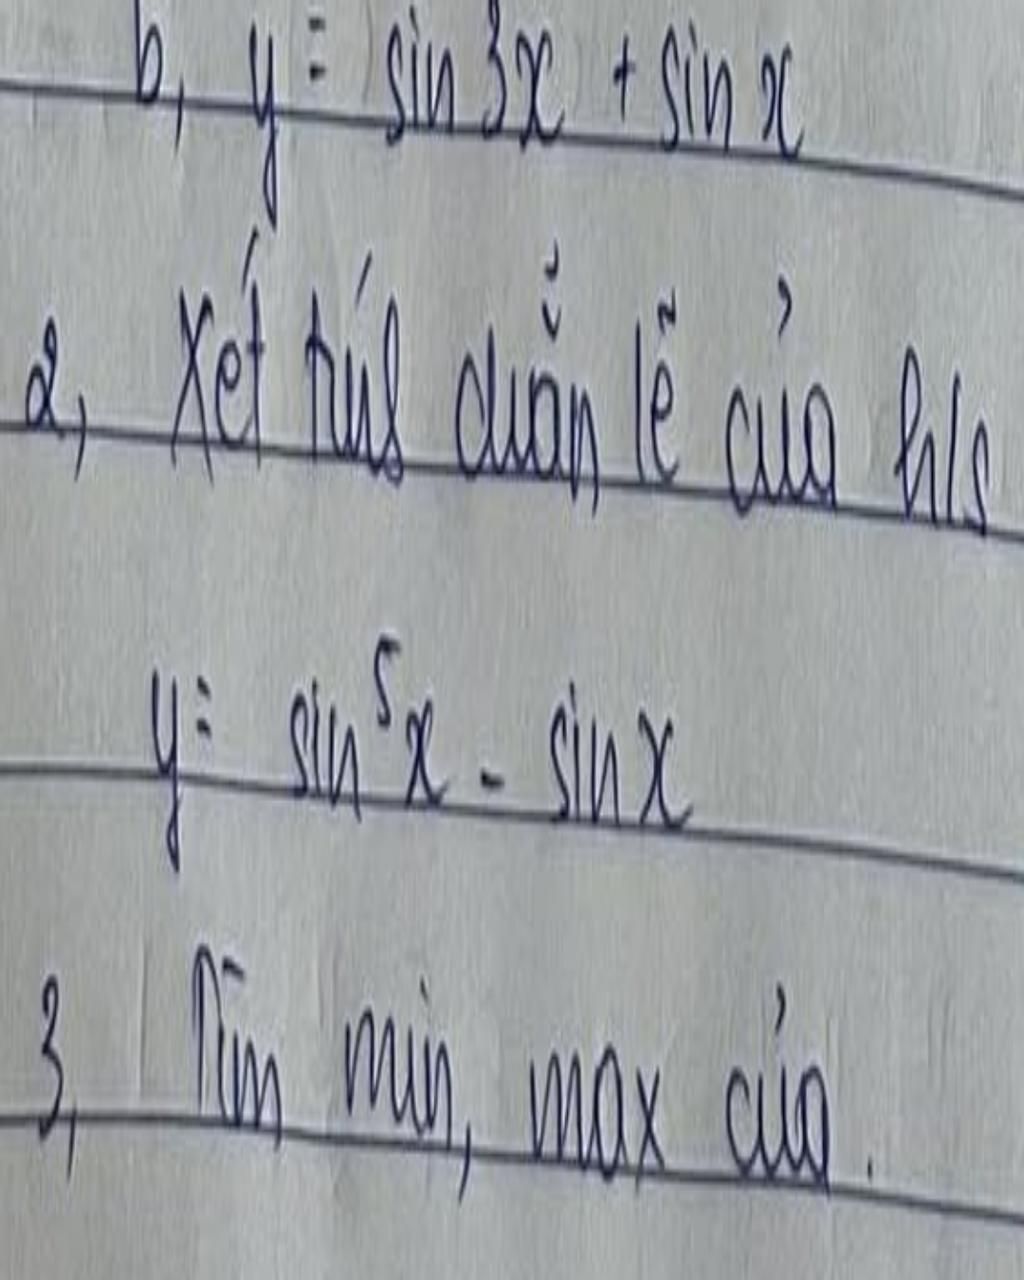 b, y = sin 3x + sin x
2, Xét tính chẵn lẽ của h/s
y = sin⁵x - sin x
3, Tìm min, max của.